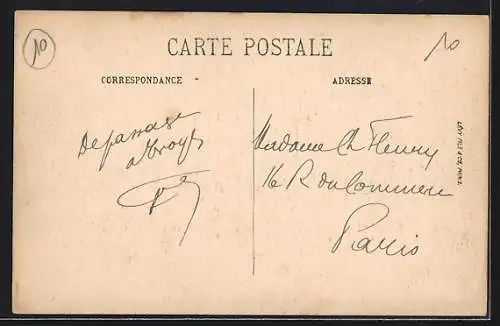 10
10
CARTE POSTALE
CORRESPONDANCE
ADRESSE
De passage
à Troyes
Madame Ch Fleury
16 R du Commerce
Paris
LÉVY FILS & CIE, PARIS